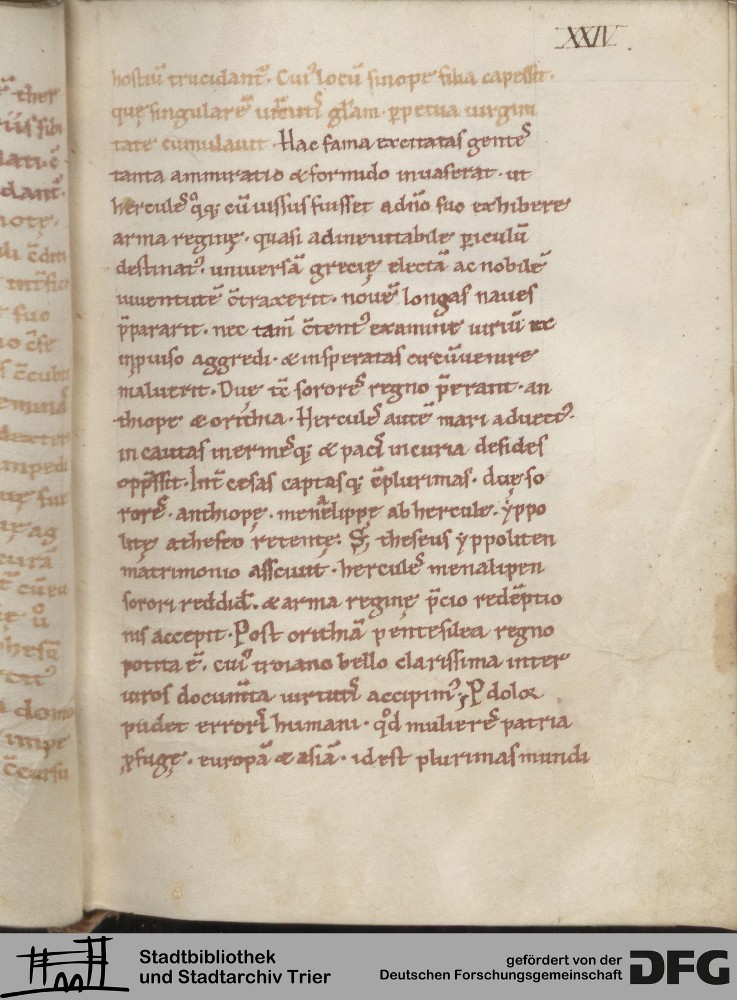 XXIV.
hostiū trucidant᷑. Cui᷒ locū sinope filia capessit.
quę singularē uirtuti᷒ gl̄am ꝑpetua uirgini
tate cumulauit. Hac fama excitatas gente᷒
tanta ammiratio & formido inuaserat. ut
hercule᷒ qͦqꝫ cū iussus fuisset a dn̄o suo exhibere
arma reginę. quasi ad ineuitabile ꝑiculū
destinat᷒. uniuersā grecię electā ac nobilē
iuuentutē ↄ̄traxerit. nouē longas naues
p̄pararit. nec tam̄ ↄ̄tent᷒ examine uiriū ex
inꝓuiso aggredi. & insperatas circūuenire
maluerit. Duę tc̄ sorore᷒ regno p̄erant. an
thiope & orithia. Hercule᷒ autē mari aduect᷒.
incautas inermeqꝫ & paci᷒ incuria desides
opp̄ssit. Int̄ cesas captasqꝫ ↄ̄plurimas. duę so
rore᷒. anthiopę. menalippę ab hercule. yppo
litę a theseo retentę. Sꝫ theseus yppoliten
matrimonio asciuit. hercule᷒ menalipen
sorori reddid̄. & arma reginę p̄cio redēptio
nis accepit. Post orithiā pentesilea regno
potita ē. cui᷒ troiano bello clarissima inter
uiros documta uirtuti᷒ accipim᷒. P dolor
pudet errori᷒ humani. qd̄ muliere᷒ patria
ꝓfugę. europā & asiā. id est plurimas mundi
Stadtbibliothek
und Stadtarchiv Trier
gefördert von der
Deutschen Forschungsgemeinschaft
DFG